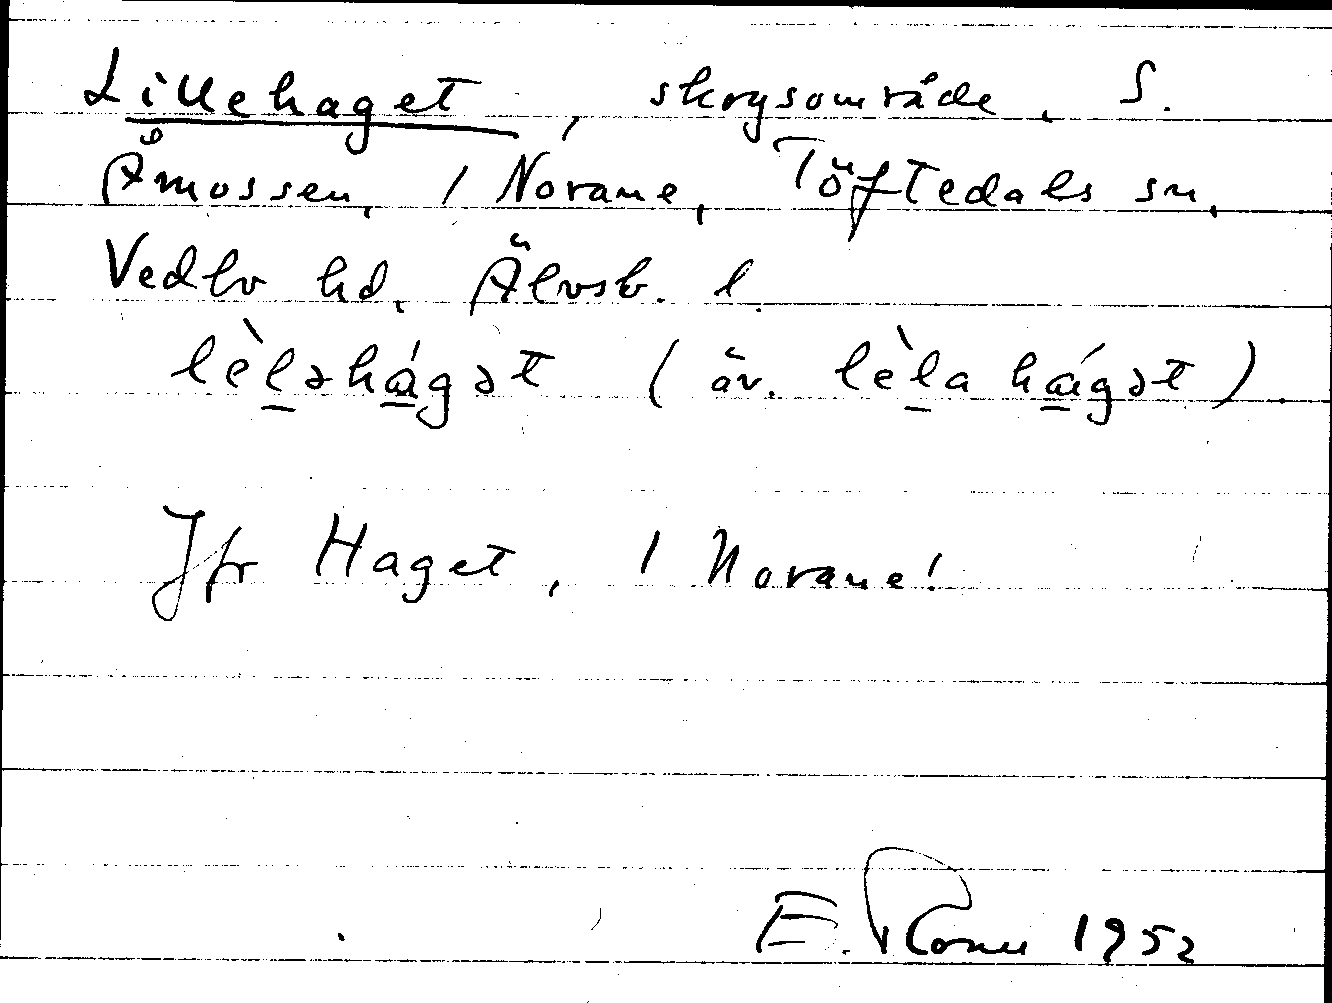 Lillehaget, skogsområde, S.
Åmossen, / Norane, Töftedals sn,
Vedbo hd, Älvsb. l.
lèləhágət (äv. lèla hágət).
Jfr Haget, / Norane!
E. 1952